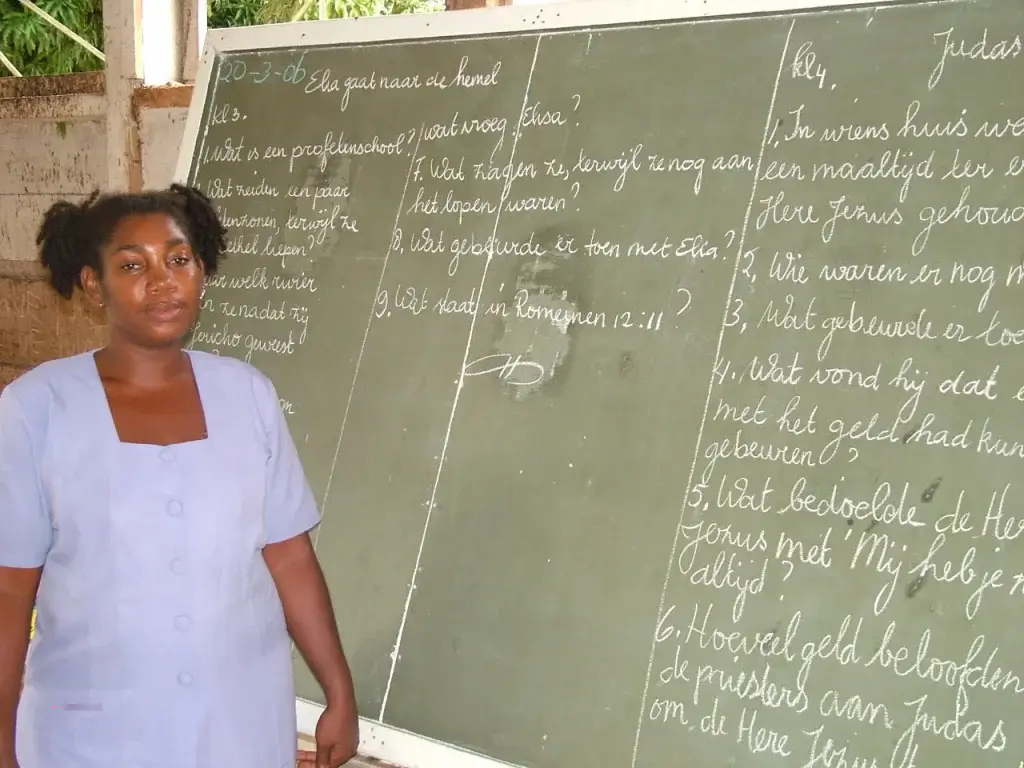 20-3-06 Elia gaat naar de hemel
kl 3.
1. Wat is een profetenschool?
Wat zeiden een paar
enzonen, terwijl ze
ethel liepen?
welk rivier
n ze nadat zij
Jericho geweest
wat vroeg Elisa?
7. Wat zagen ze, terwijl ze nog aan
het lopen waren?
8, Wat gebeurde er toen met Elia?
9. Wat staat in Romeinen 12:11 ?
kl 4. Judas
1. In wiens huis we
een maaltijd ter e
Here Jezus gehoud
2, Wie waren er nog m
3, Wat gebeurde er toe
4. Wat vond hij dat e
met het geld had kun
gebeuren?
5. Wat bedoelde de He
Jezus met 'Mij heb je n
altijd?
6. Hoeveel geld beloofden
de priesters aan Judas
om de Here Jezus